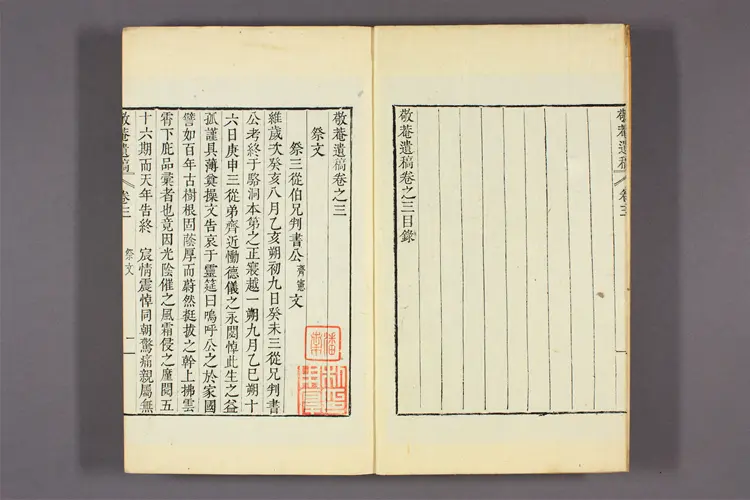 敬菴遺稿 卷三
敬菴遺稿卷之三目錄
敬菴遺稿卷之三
祭文
祭三從伯兄判書公齊憲文
維歲次癸亥八月乙亥朔初九日癸未三從兄判書
公考終于駱洞本第之正寢越一朔九月乙巳朔十
六日庚申三從弟齊近慟德儀之永閟悼此生之益
孤謹具薄奠操文告哀于靈筵曰嗚呼公之於家國
譬如百年古樹根固蔭厚而蔚然挺拔之幹上拂雲
霄下庇品彙者也竟因光陰催之風霜侵之廑閱五
十六期而天年告終 宸情震悼同朝驚痛親屬無
敬菴遺稿 卷三 祭文 二